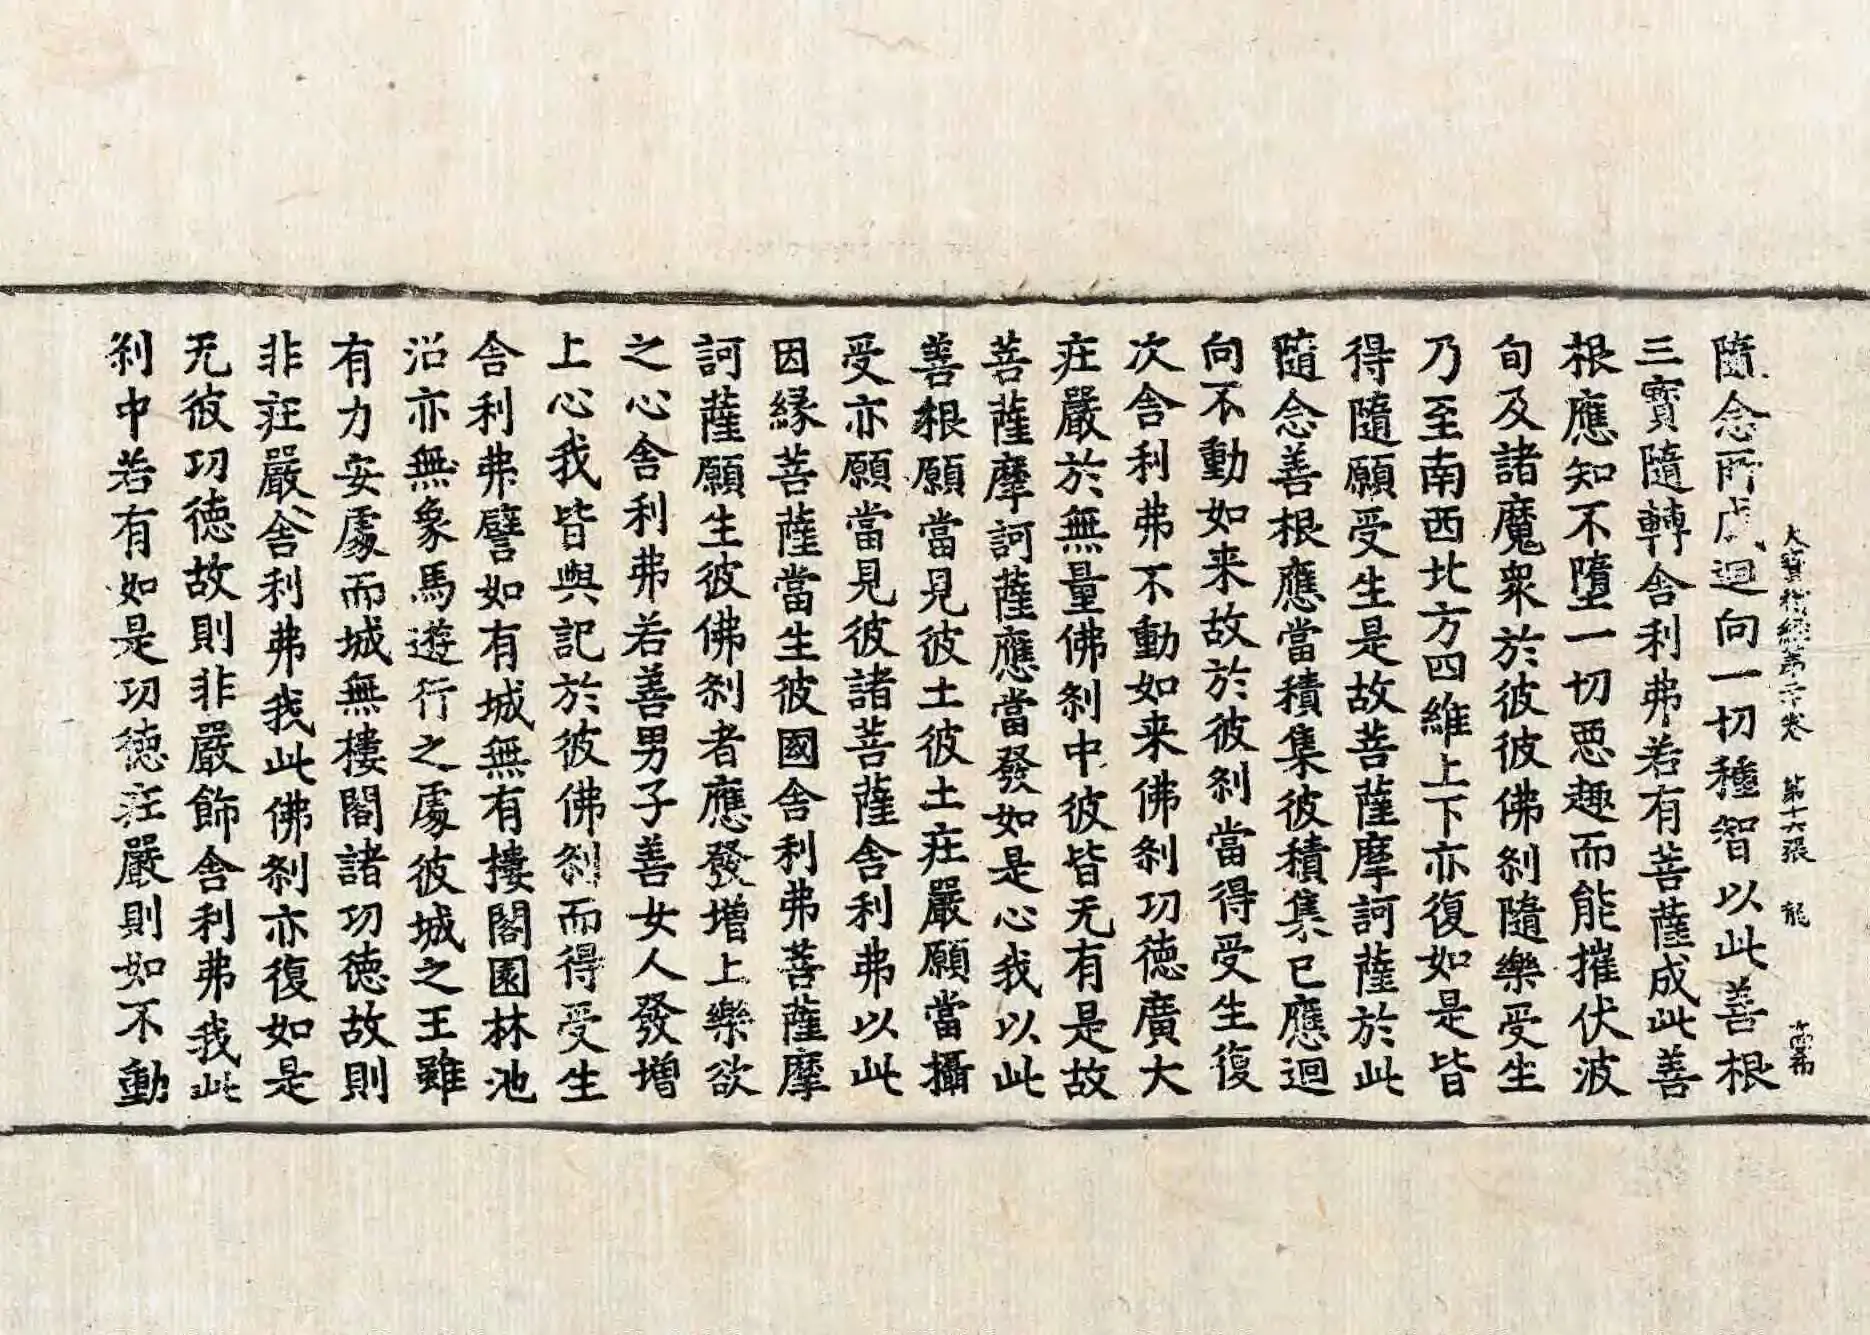 大寳積經第二十卷 第十六張 龍
隨念所成迴向一切種智以此善根
三寳隨轉舍利弗若有菩薩成此善
根應知不墮一切惡趣而能摧伏波
旬及諸魔衆於彼彼佛刹隨樂受生
乃至南西北方四維上下亦復如是皆
得隨願受生是故菩薩摩訶薩於此
隨念善根應當積集彼積集已應迴
向不動如来故於彼刹當得受生復
次舍利弗不動如来佛刹功徳廣大
莊嚴於無量佛刹中彼皆无有是故
菩薩摩訶薩應當發如是心我以此
善根願當見彼土彼土莊嚴願當攝
受亦願當見彼諸菩薩舍利弗以此
因縁菩薩當生彼國舍利弗菩薩摩
訶薩願生彼佛刹者應發増上樂欲
之心舍利弗若善男子善女人發増
上心我皆與記於彼佛刹而得受生
舍利弗譬如有城無有樓閣園林池
沼亦無象馬遊行之處彼城之王雖
有力安處而城無樓閣諸功徳故則
非莊嚴舍利弗我此佛刹亦復如是
无彼功徳故則非嚴飾舍利弗我此
刹中若有如是功徳莊嚴則如不動